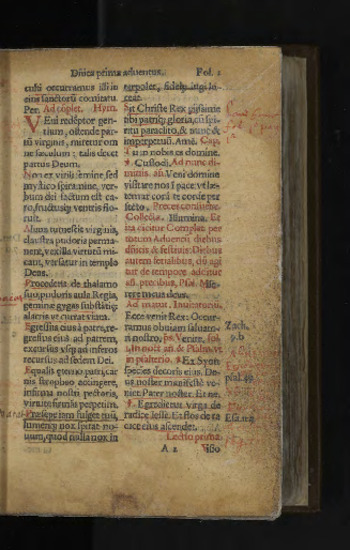 Dñica prima aduentus. Fol. 1
culũ occurramus illi in
eius sanctorũ comitatu
Per. Ad cõplet. Hym.
VEni redẽptor gen-
tium, ostende par-
tũ virginis, miretur om
ne sæculum: talis decet
partus Deum.
Non ex virili semine, sed
mystico spiramine, ver-
bum dei factum est ca-
ro, fructusq; ventris flo-
ruit.
Aluus tumescit virginis,
claustra pudoris perma-
nent, vexilla virtutũ mi-
cant, versatur in templo
Deus.
Procedens de thalamo
suo, pudoris aula Regia,
geminæ gygas substãtiæ
alacris vt currat viam.
Egressus eius à patre, re-
gressus eius ad patrem,
excursus vsq; ad inferos
recursus ad sedem Dei.
Equalis æterno patri, car
nis strophæo accingere,
infirma nostri pectoris,
virtute firmãs perpetim.
Præsepe iam fulget tuũ,
lumenq; nox spirat no-
uum, quod nulla nox in
terpolet, fideq; iugi lu-
ceat.
Sit Christe Rex piissime
tibi patriq; gloria, cũ spi-
ritu paraclito, & nunc &
in perpetuũ. Amẽ. Cap.
Tu in nobis es domine.
Custodi. Ad nunc di-
mittis. añ. Veni domine
visitare nos ĩ pace vt læ-
temur corã te corde per
fecto. Preces consuetæ.
Collecta. Illumina. Et
ita dicitur Complet. per
totum Aduentũ diebus
dñicis & festiuis: Diebus
autem ferialibus, cũ agi
tur de tempore adduntur
añ. precibus, Psal. Mise-
rere mei deus.
Ad matut. Inuitatoriũ.
Ecce venit Rex: Occur-
ramus obuiam saluato-
ri nostro. ps. Venite.
In noct. añ. & Psalmi vt
in psalterio. Ex Syon
species decoris eius. De-
us noster manifestè ve-
niet: Pater noster. Et ne.
Egredietur virga de
radice Iesse. Et flos de ra
dice eius ascendet.
Lectio prima.
A 2 Visio
Zach.
9.b
psal. 49
Esa. 11.a